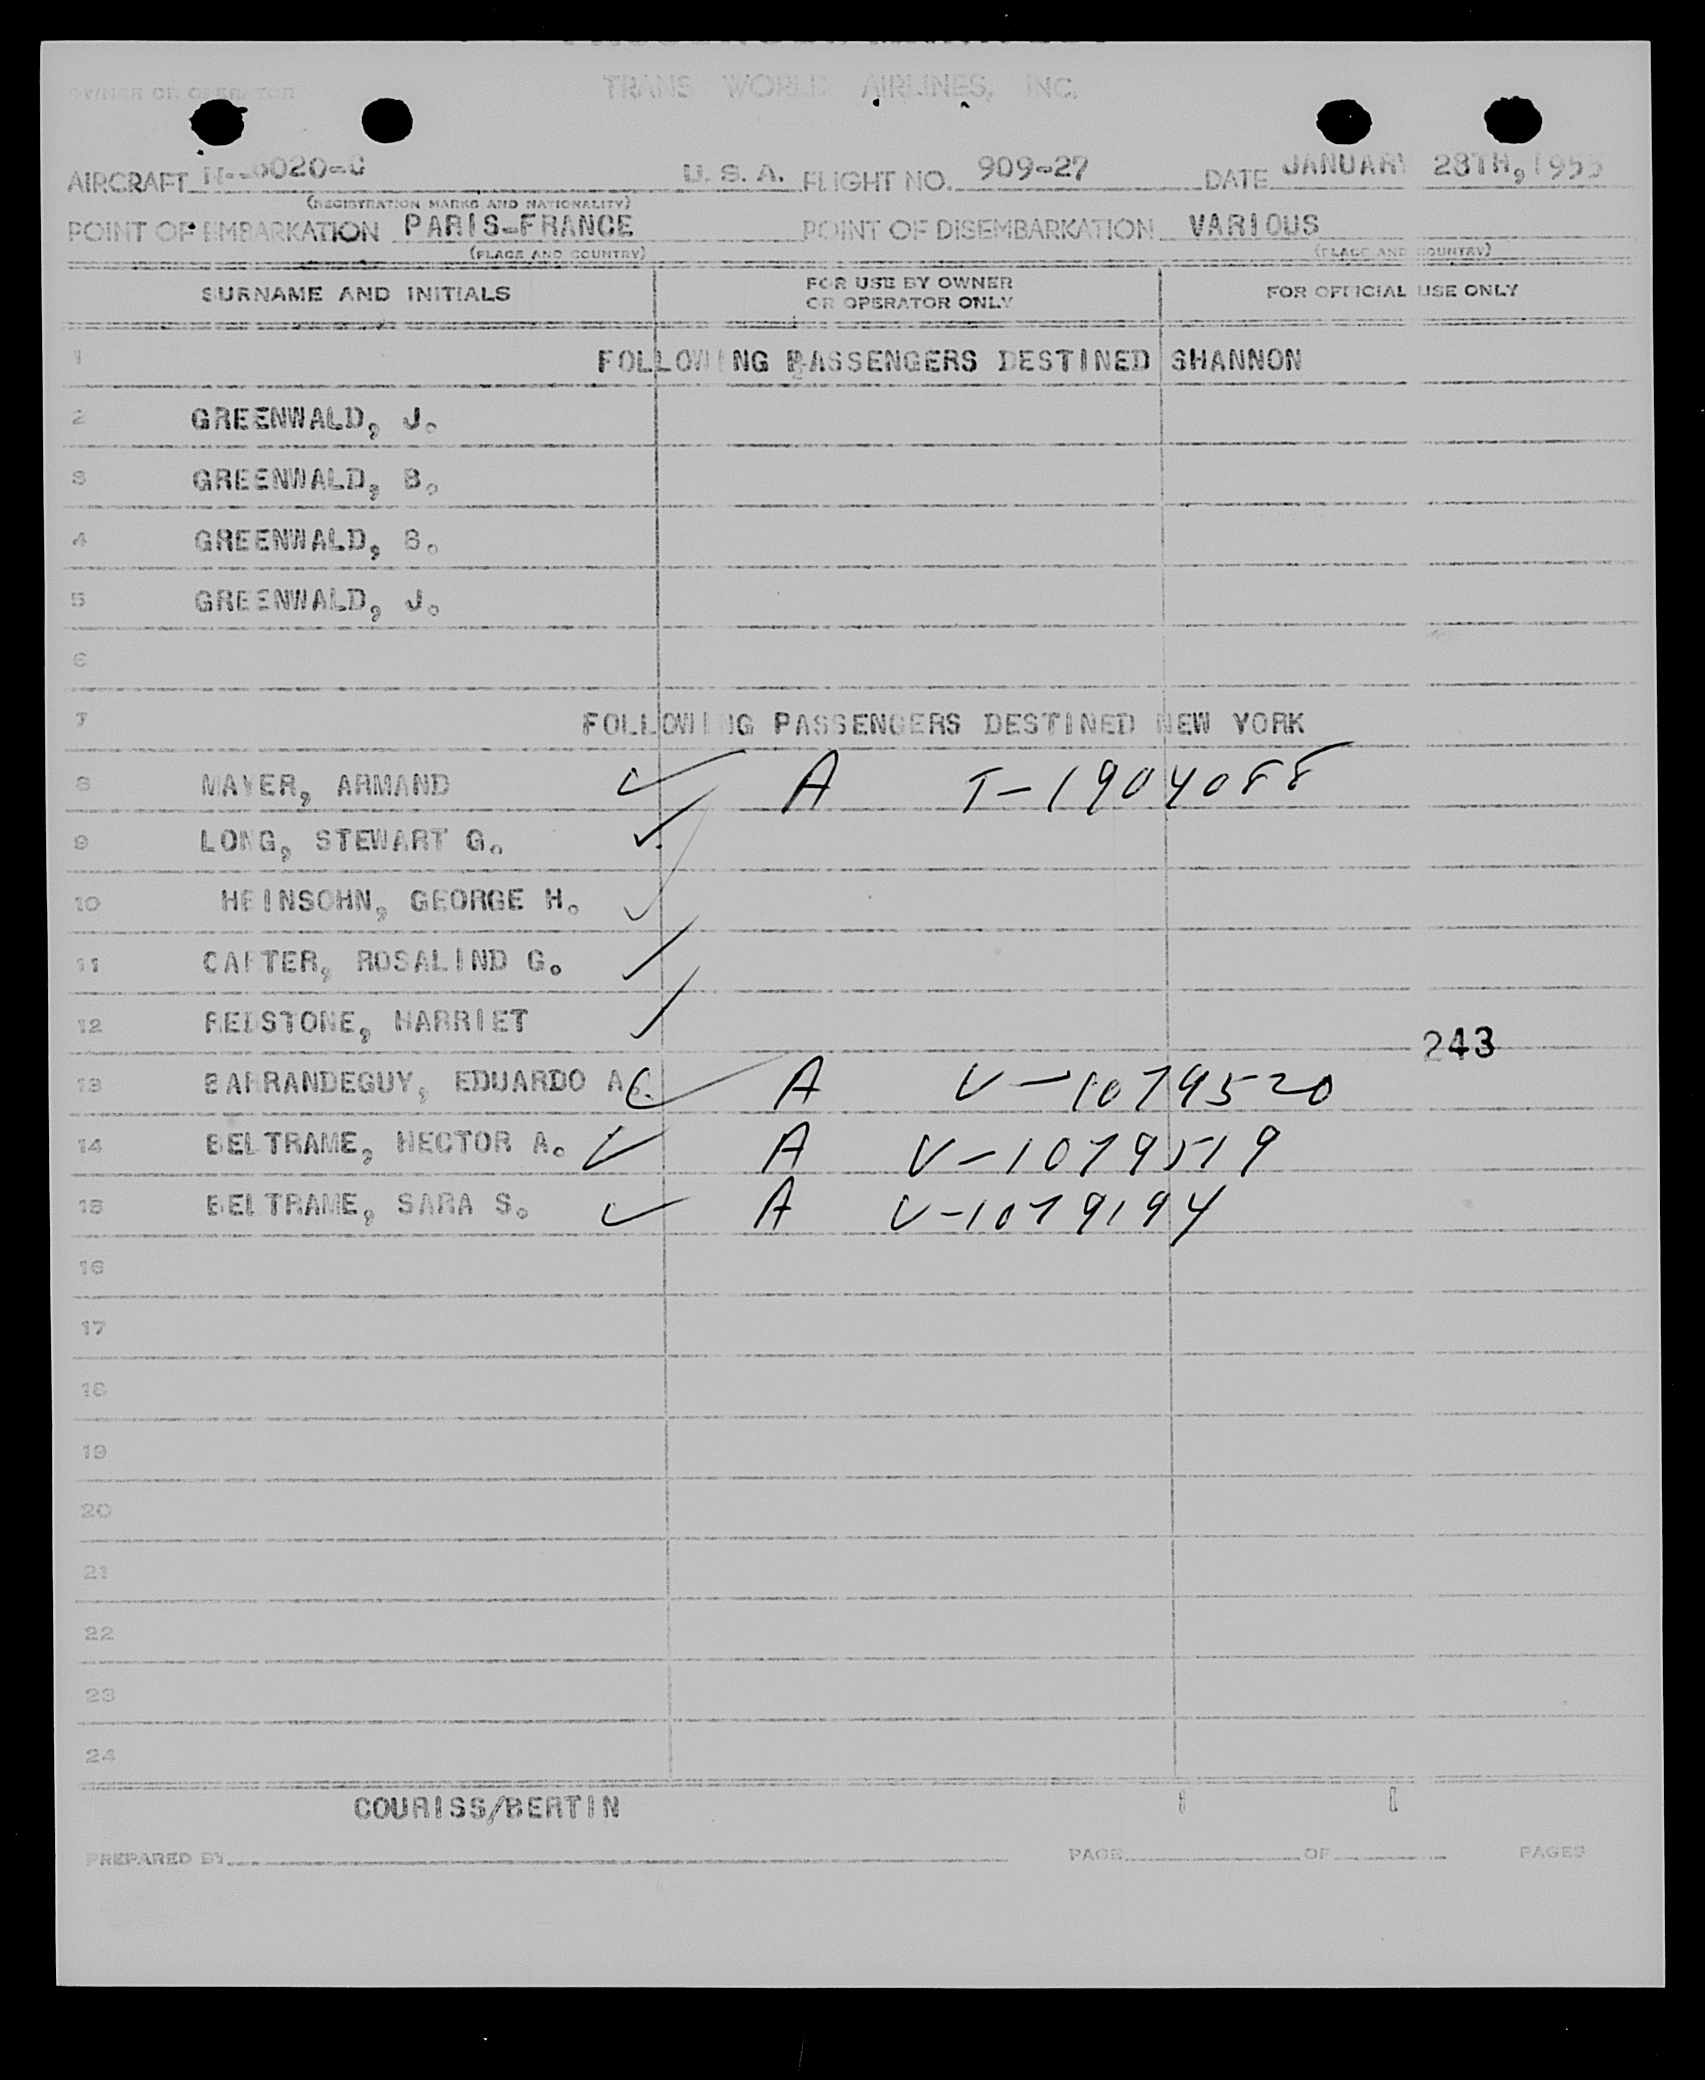 OWNER OR OPERATOR TRANS WORLD AIRLINES, INC.
AIRCRAFT N-6020-C U. S. A. FLIGHT NO. 909-27 DATE JANUARY 28TH, 1953
(REGISTRATION MARKS AND NATIONALITY)
POINT OF EMBARKATION PARIS-FRANCE POINT OF DISEMBARKATION VARIOUS
(PLACE AND COUNTRY) (PLACE AND COUNTRY)
SURNAME AND INITIALS FOR USE BY OWNER OR OPERATOR ONLY FOR OFFICIAL USE ONLY
1 FOLLOWING PASSENGERS DESTINED SHANNON
2 GREENWALD, J.
3 GREENWALD, B.
4 GREENWALD, S.
5 GREENWALD, J.
6
7 FOLLOWING PASSENGERS DESTINED NEW YORK
8 MAYER, ARMAND ✓ A T-1904088
9 LONG, STEWART G. ✓
10 HEINSOHN, GEORGE H. ✓
11 CARTER, ROSALIND G. ✓
12 REDSTONE, HARRIET ✓
243
13 BARRANDEGUY, EDUARDO A. ✓ A V-1079520
14 BELTRAME, HECTOR A. ✓ A V-1079519
15 BELTRAME, SARA S. ✓ A V-1079194
16
17
18
19
20
21
22
23
24
COURISS/BERTIN 1 1
PREPARED BY PAGE OF PAGES